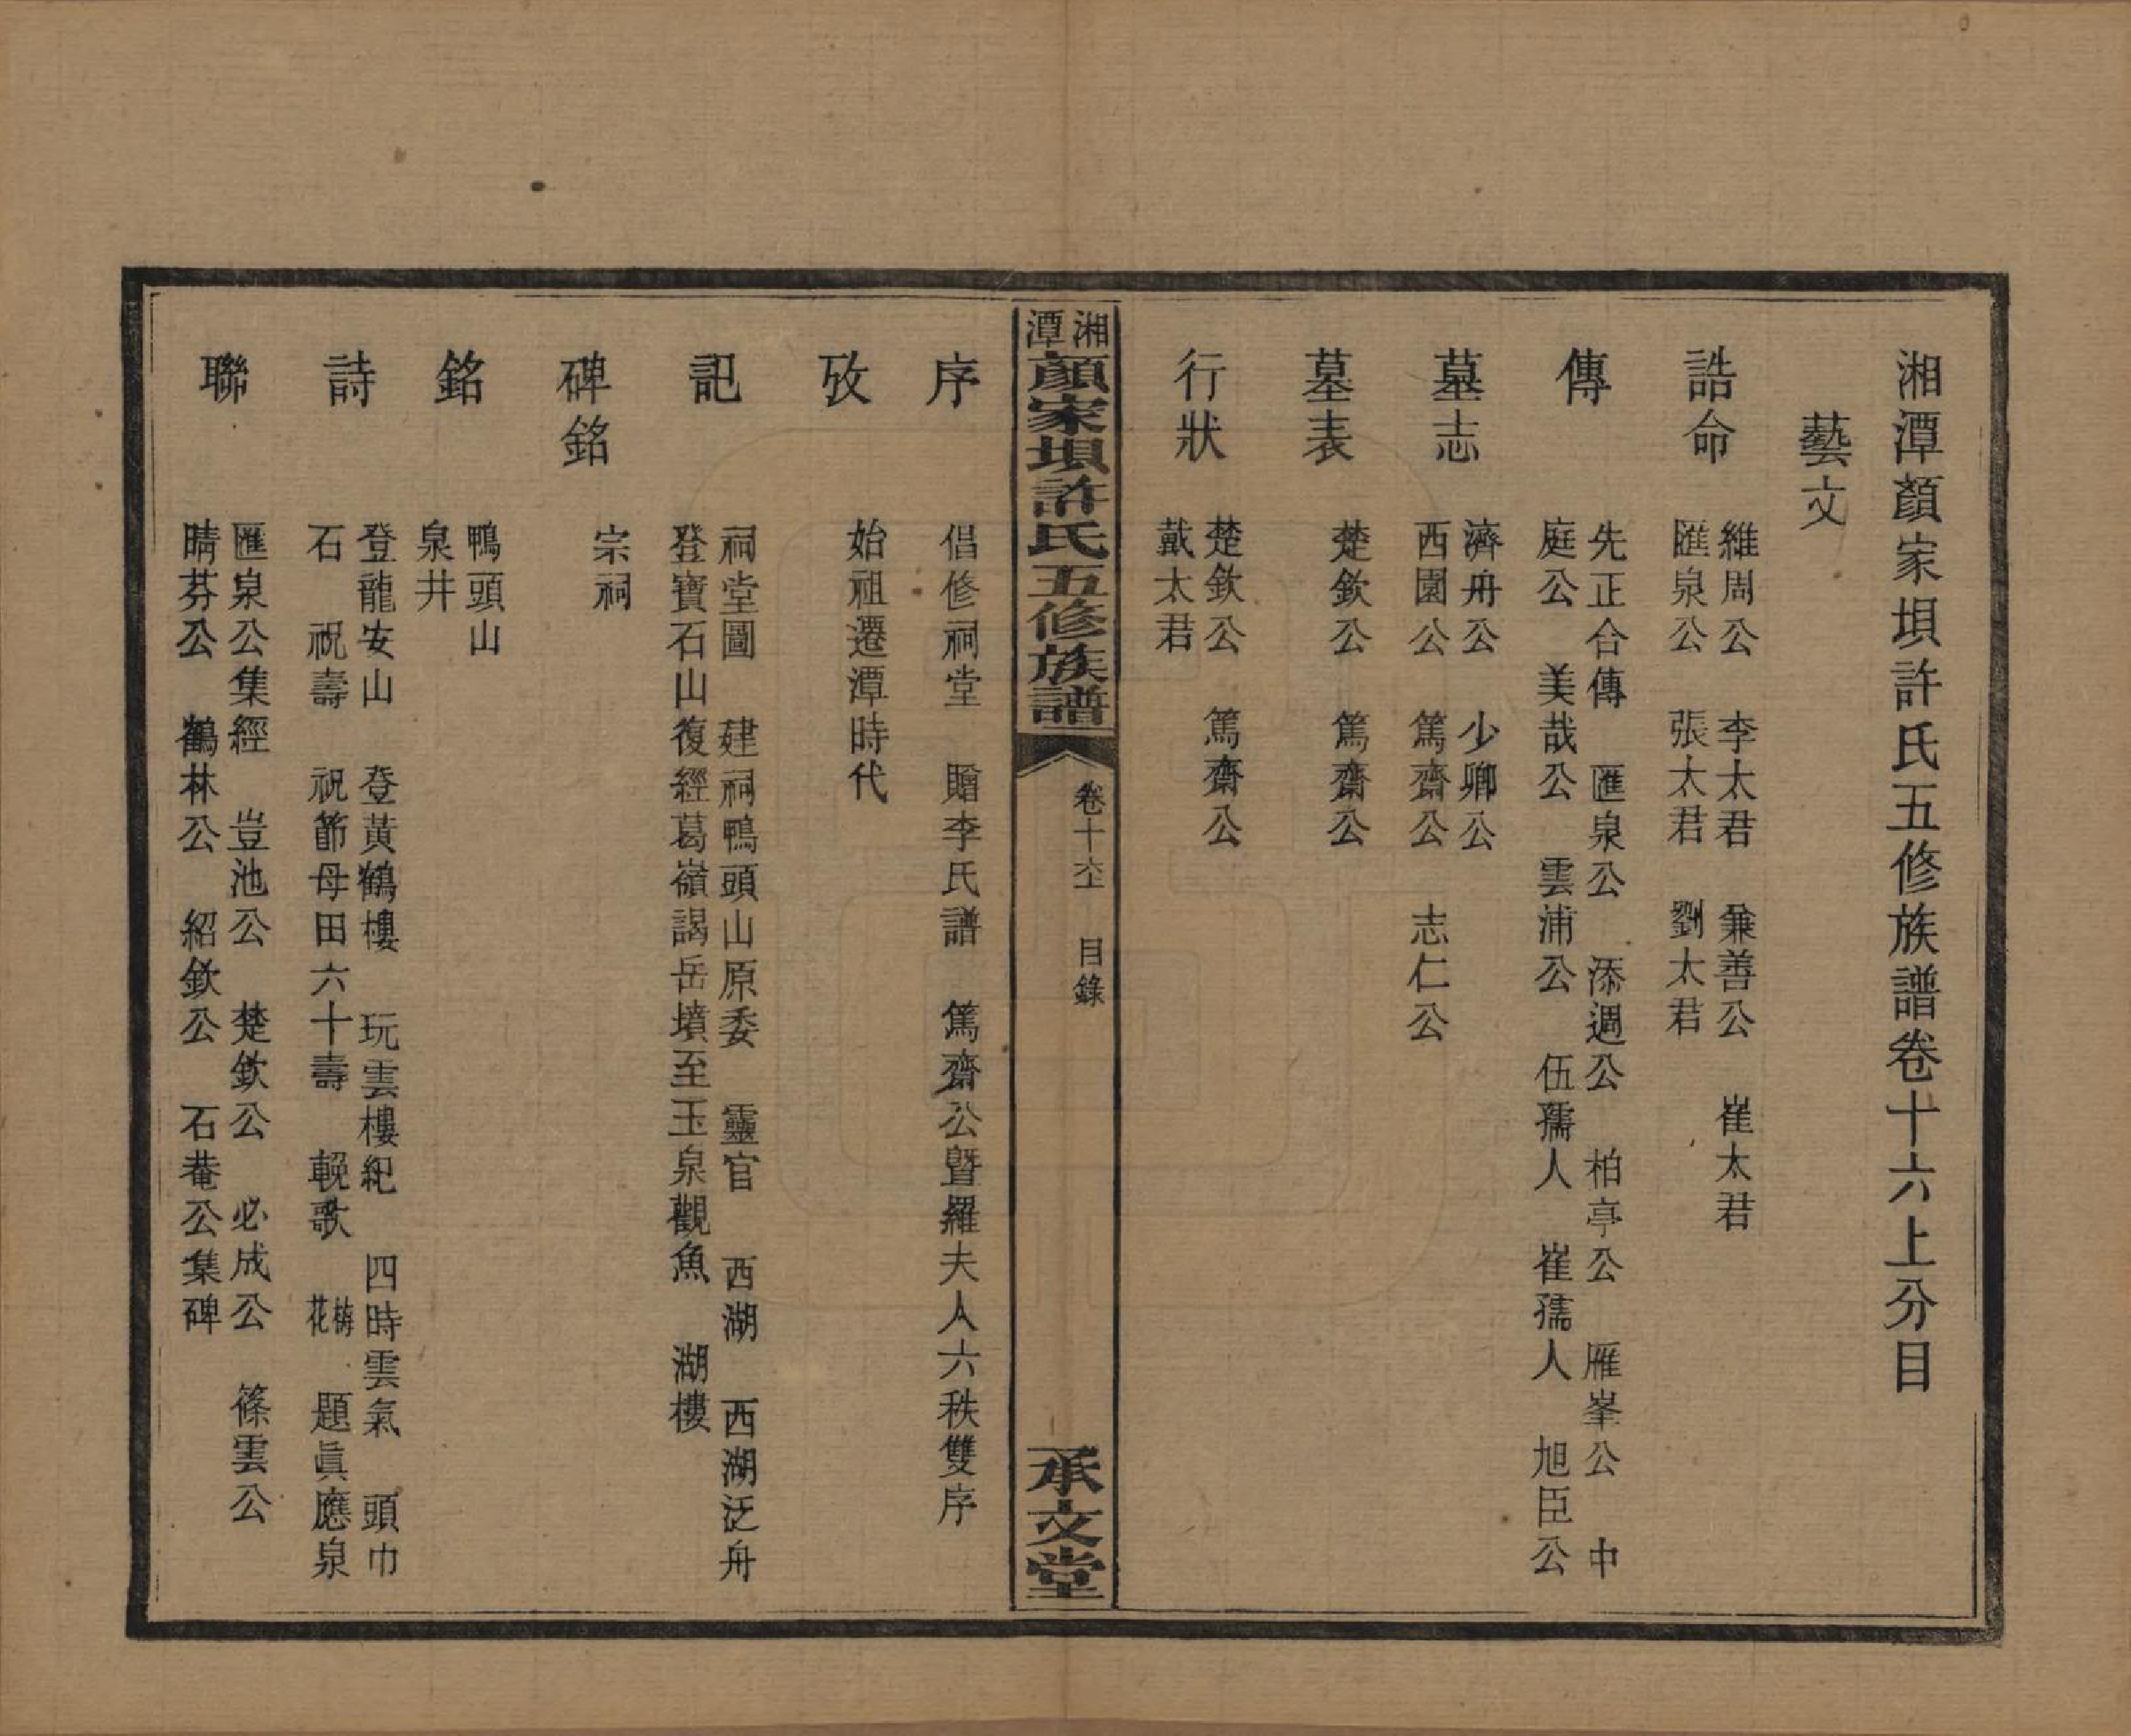 湘潭顏家垻許氏五修族譜卷十六上分目
藝文
誥命
維周公　李太君　兼善公　崔太君
匯泉公　張太君　劉太君
傳
先正合傳　匯泉公　添週公　柏亭公　雁峯公　中
庭公　美哉公　雲浦公　伍孺人　崔孺人　旭臣公
墓志
濟舟公　少卿公
西園公　篤齋公　志仁公
墓表
楚欽公　篤齋公
行狀
楚欽公　篤齋公
戴太君
湘潭顏家垻許氏五修族譜
卷十六上　目錄
承文堂
序
倡修祠堂　贈李氏譜　篤齋公暨羅夫人六秩雙序
攷
始祖遷潭時代
記
祠堂圖　建祠鴨頭山原委　靈官　西湖　西湖泛舟
登寶石山復經葛嶺謁岳墳至玉泉觀魚　湖樓
碑銘
宗祠
銘
鴨頭山
泉井
詩
登龍安山　登黃鶴樓　玩雲樓紀　四時雲氣　頭巾
石　祝壽　祝節母田六十壽　輓歌　梅花　題眞應泉
聯
匯泉公集經　豈池公　楚欽公　必成公　篠雲公
晴芬公　鶴林公　紹欽公　石菴公集碑